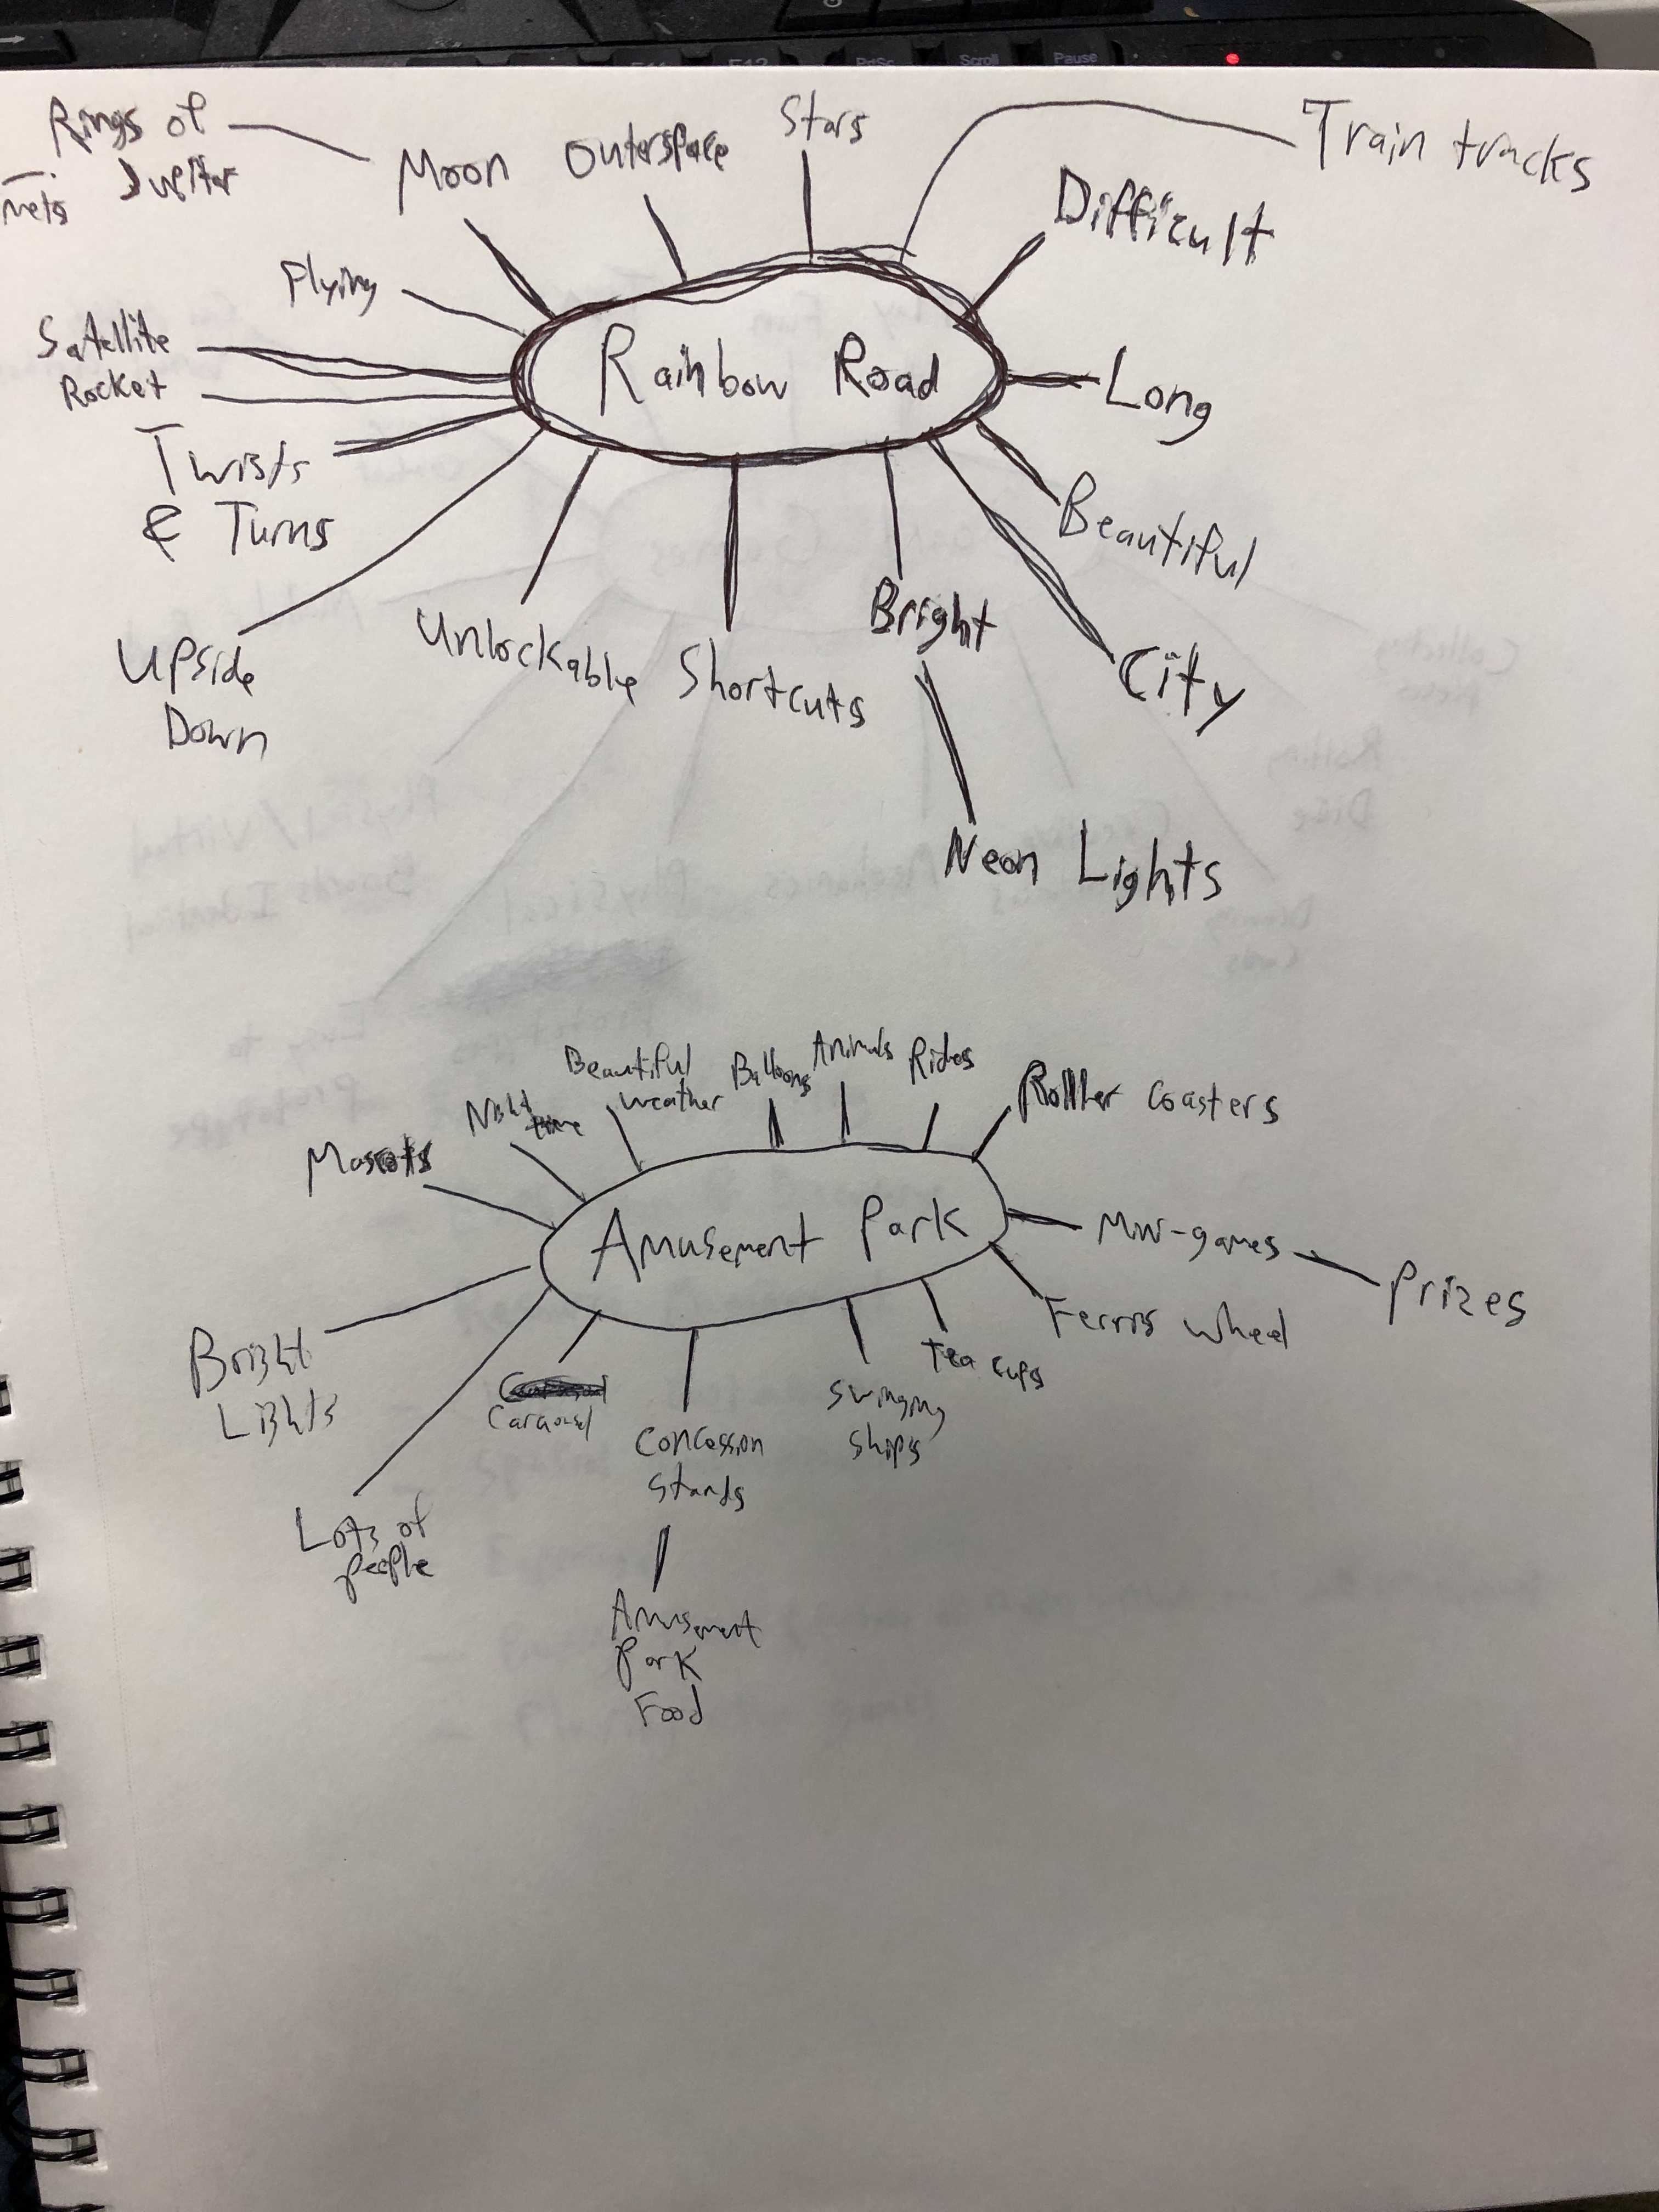 PrtSc
Scroll
Pause
Rings of
Jupiter
Moon
Outerspace
Stars
Train tracks
Difficult
Flying
Satellite
Rocket
Twists
& Turns
Rainbow Road
Long
Beautiful
Upside
Down
Unlockable
Shortcuts
Bright
City
Neon Lights
Mascots
Night
time
Beautiful
weather
Balloons
Animals
Rides
Roller coasters
Amusement Park
Mini-games
Prizes
Ferris wheel
Tea cups
Swinging
Ships
Bright
Lights
Carousel
Concession
Stands
Lots of
people
Amusement
Park
Food